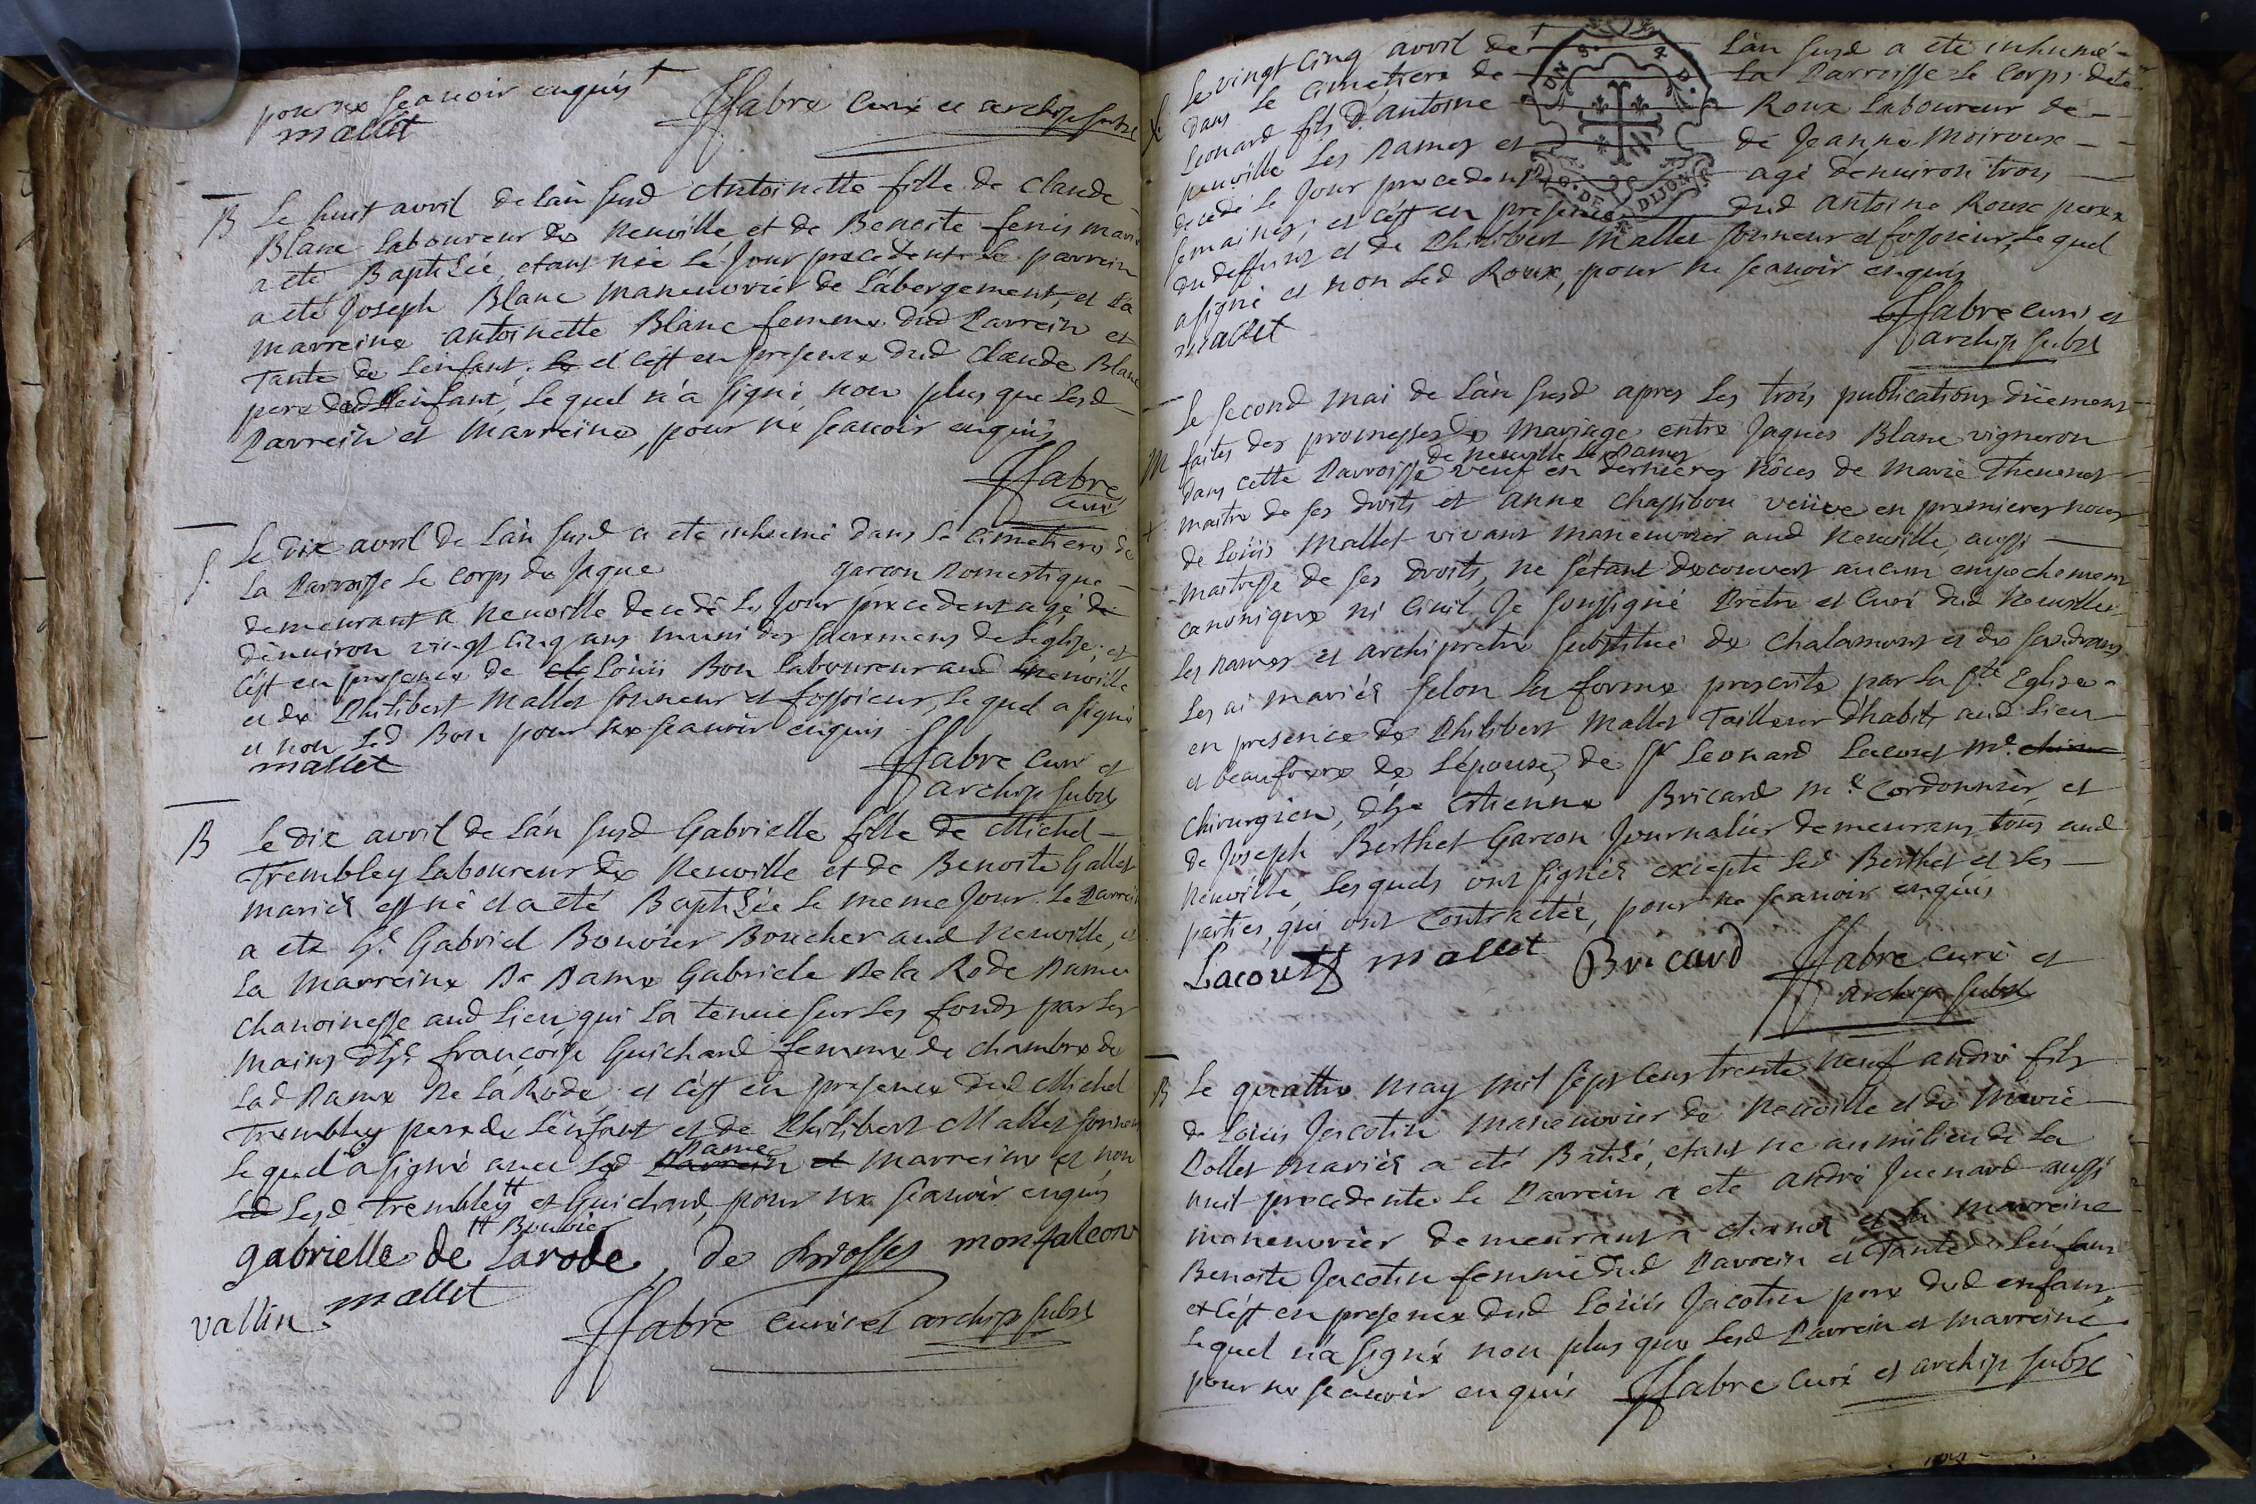 pour ne scavoir enquis +
mallet ffabre curé et archip subst
B Le huit avril de l'an susd Antoinette fille de Claude
Blanc laboureur de Neuville et de Benoite fenis mariés
a eté Baptisée, etant née le jour precedent. Le parrein
a eté Joseph Blanc maneuvrier de l'abergement, et la
marreine antoinette Blanc femme dud Parrein et
tante de l'enfant, et c'est en presence dud Claude Blanc
pere dud l'enfant, lequel n'a signé, non plus que lesd
Parrein et marreine, pour ne scavoir enquis
ffabre
curé
S. Le dix avril de l'an susd a eté inhumé dans le cimetiere de
la Parroisse le corps de jaque garcon Domestique
demeurant a Neuville decedé le jour precedent agé de
d'environ vingt cinq ans muni des sacremens de l'eglise, et
c'est en presence de Loüis Bon laboureur aud neuville
et de Philibert Mallet sonneur et fossoieur, lequel a signé
et non led Bon pour ne scavoir enquis
mallet ffabre curé et
archip subst
B Le dix avril de l'an susd Gabrielle fille de Michel
Trembley Laboureur de Neuville et de Benoite Gallet
mariés est né et a eté Baptisée le meme jour. Le Parrein
a ete Sr Gabriel Bouvier Boucher aud Neuville, et
la Marreine De Dame Gabriele De la Rode Dame
chanoinesse aud lieu, qui l'a tenue sur les fonds par les
mains d'hte françoise Guichard femme de chambre de
lad Dame De la Rode et c'est en presence dud Michel
Trembley pere de l'enfant et de Philibert Mallet sonneur
lequel a signé avec lad Dame Parrein et marreine et non
led lesd Trembley # et Guichard, pour ne scavoir enquis
# Bouvier
gabrielle de Larode, de Brosses montfalcon
vallin mallet
ffabre curé et archip subst
Le vingt cinq avril de l'an susd a eté inhumé
dans le cimetiere de la Parroisse le corps de
Leonard fils d'antoine Roux laboureur de
neuville les Dames et de Jeanne Moiroux
decedé le jour precedent agé d'environ trois
semaines, et c'est en presence dud antoine Roux pere
du deffunt et de Philibert Mallet sonneur et fossoieur, lequel
a signé et non led Roux, pour ne scavoir enquis
mallet ffabre curé et
archip subst
DIJON
M Le second mai de l'an susd apres les trois publications düement
faites des promesses de Mariage entre Jaques Blanc vigneron
de neuville les Dames
dans cette Parroisse veuf en dernieres nôces de Marie Thevenet
maitre de ses droits et anne Chassibou veüve en premieres noces
de Loüis Mallet vivant maneuvrier aud Neuville, aussi
maitresse de ses droits, ne s'étant decouvert aucun empechement
canonique ni civil. Je soussigné Pretre et Curé dud Neuville
les Dames et archipretre substitué de Chalamont et de sandrans
les ai mariés selon la forme prescrite par la ste Eglise
en presence de Philibert Mallet Tailleur d'habits aud lieu
et beaufrere de l'épouse, de Sr Leonard Lacout Me
chirurgien, d'hte Etienne Bricard me Cordonnier, et
de Joseph Berthet Garcon Journalier demeurans tous aud
Neuville, lesquels ont signés excepté led Berthet et les
parties, qui ont contractée, pour ne scavoir enquis
Lacoutt mallet Bricard ffabre curé et
archip subst
B Le quattre may mil sept cens trente neuf andré fils
de Loüis Jacotin maneuvrier de Neuville et de Marie
Pollet mariés a eté Batisé, etant né au milieu de la
nuit precedente. Le Parrein a eté andré Juenard aussi
maneuvrier demeurant a et la marreine
Benoite Jacotin femme dud Parrein et Tante de l'enfant
et c'est en presence dud Loüis Jacotin pere dud enfant,
lequel n'a signé non plus que lesd Parrein et marreine
pour ne scavoir enquis ffabre curé et archip subst